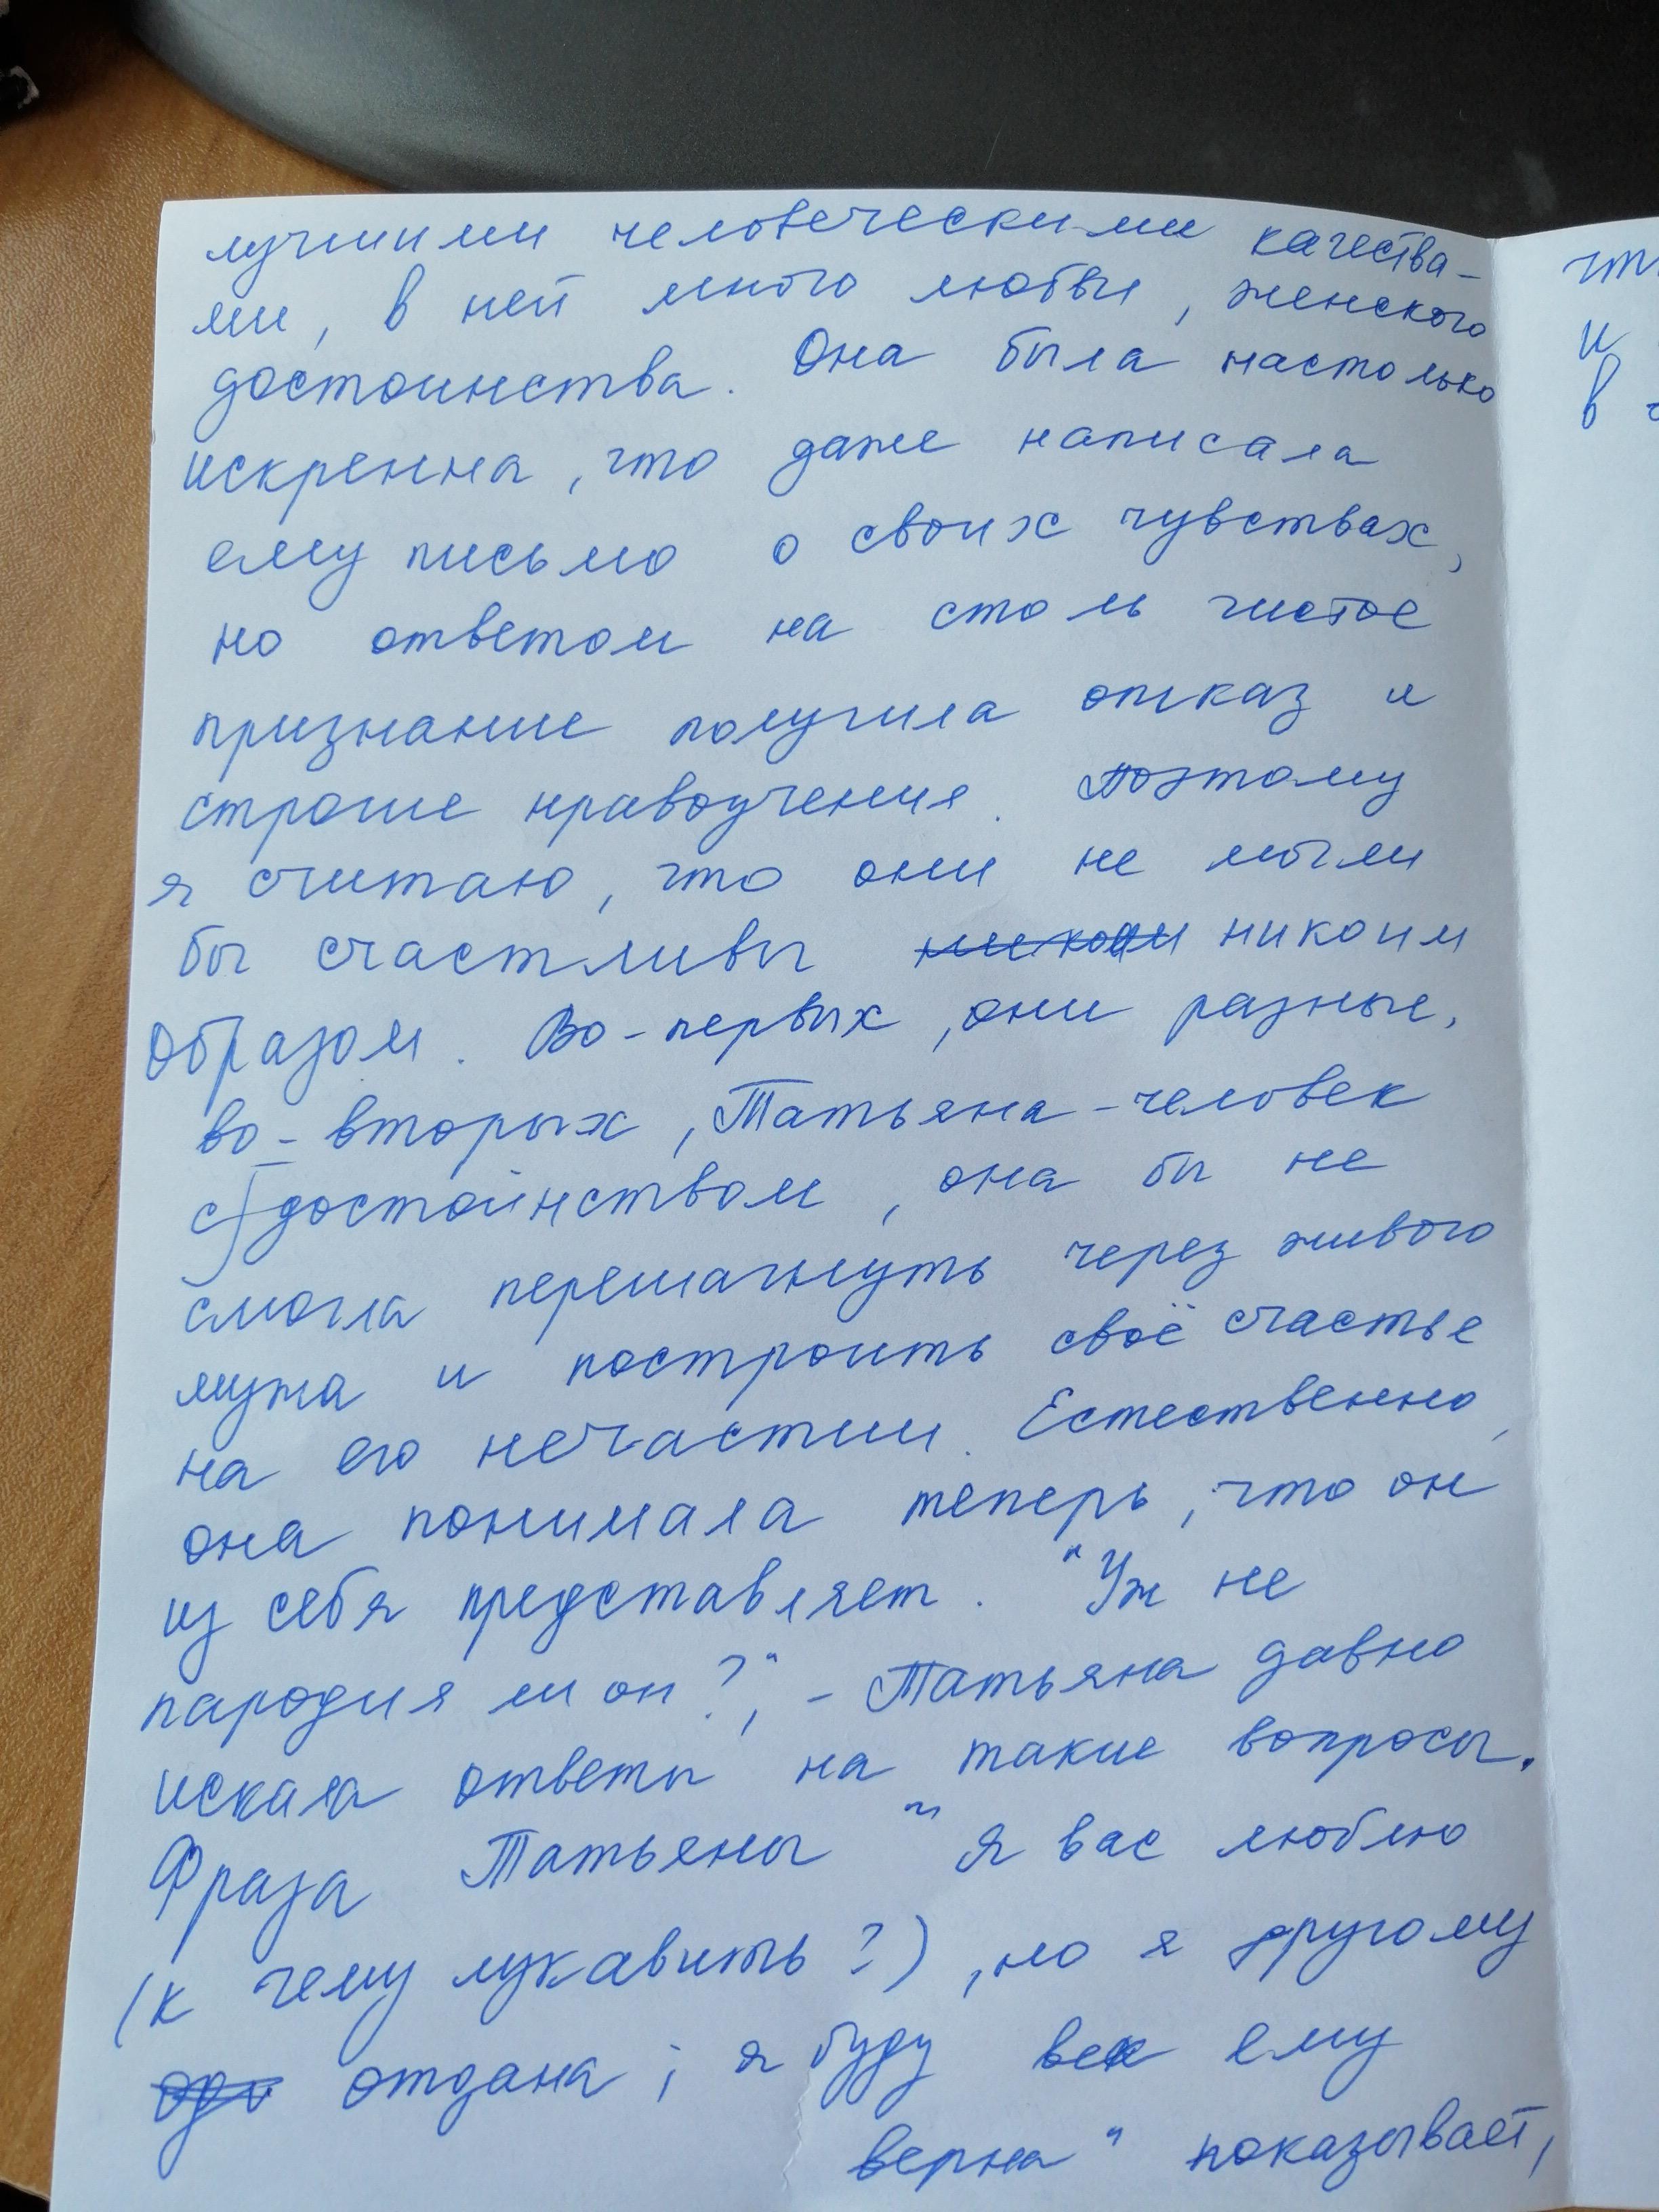 лучшими человеческими качества-
ми, в ней много любви, женского
достоинства. Она была настолько
искренна, что даже написала
ему письмо о своих чувствах,
но ответом на столь чистое
признание получила отказ и
строгие нравоучения. Поэтому
я считаю, что они не могли
бы счастливы никоим
образом. Во-первых, они разные,
во-вторых, Татьяна - человек
с достоинством, она бы не
смогла перешагнуть через живого
мужа и построить своё счастье
на его нечастии. Естественно,
она понимала теперь, что он
из себя представляет. "Уж не
пародия ли он?", - Татьяна давно
искала ответы на такие вопросы.
Фраза Татьяны "Я вас люблю
(к чему лукавить?), но я другому
отдана; я буду век ему
верна" показывает,
чт
и
в